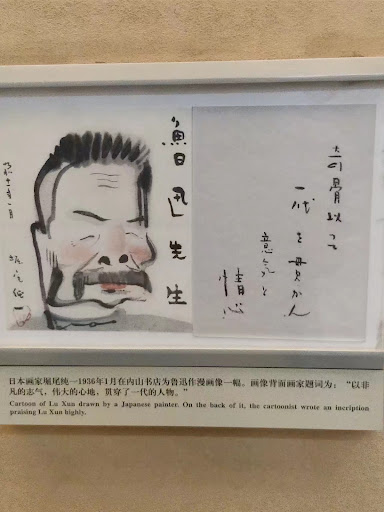 魯迅先生
堀尾純一
骨以て
一代を貫かん
意気と
情心
日本画家堀尾纯一1936年1月在内山书店为鲁迅作漫画像一幅。画像背面画家题词为：“以非
凡的志气，伟大的心地，贯穿了一代的人物。”
Cartoon of Lu Xun drawn by a Japanese painter. On the back of it, the cartoonist wrote an incription
praising Lu Xun highly.